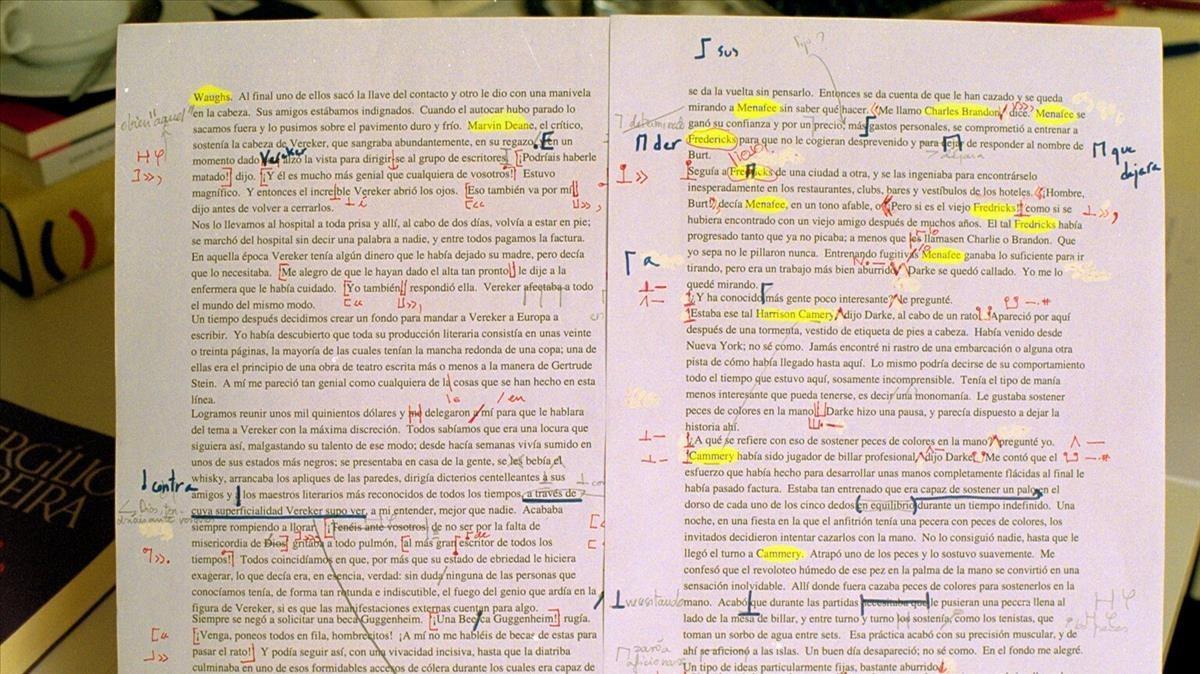 Waughs. Al final uno de ellos sacó la llave del contacto y otro le dio con una manivela
en la cabeza. Sus amigos estábamos indignados. Cuando el autocar hubo parado lo
sacamos fuera y lo pusimos sobre el pavimento duro y frío. Marvin Deane, el crítico,
sostenía la cabeza de Vereker, que sangraba abundantemente, en su regazo. En un
momento dado Vereker alzó la vista para dirigir se al grupo de escritores. ¡Podríais haberle
matado! dijo. ¡Y él es mucho más genial que cualquiera de vosotros! Estuvo
magnífico. Y entonces el increíble Vereker abrió los ojos. Eso también va por mí
dijo antes de volver a cerrarlos.
Nos lo llevamos al hospital a toda prisa y allí, al cabo de dos días, volvía a estar en pie;
se marchó del hospital sin decir una palabra a nadie, y entre todos pagamos la factura.
En aquella época Vereker tenía algún dinero que le había dejado su madre, pero decía
que lo necesitaba. Me alegro de que le hayan dado el alta tan pronto le dije a la
enfermera que le había cuidado. Yo también respondió ella. Vereker afectaba a todo
el mundo del mismo modo.
Un tiempo después decidimos crear un fondo para mandar a Vereker a Europa a
escribir. Yo había descubierto que toda su producción literaria consistía en unas veinte
o treinta páginas, la mayoría de las cuales tenían la mancha redonda de una copa; una de
ellas era el principio de una obra de teatro escrita más o menos a la manera de Gertrude
Stein. A mí me pareció tan genial como cualquiera de la cosas que se han hecho en esta
línea.
Logramos reunir unos mil quinientos dólares y me delegaron a mí para que le hablara
del tema a Vereker con la máxima discreción. Todos sabíamos que era una locura que
siguiera así, malgastando su talento de ese modo; desde hacía semanas vivía sumido en
unos de sus estados más negros; se presentaba en casa de la gente, se les bebía el
whisky, arrancaba los apliques de las paredes, dirigía dicterios centelleantes a sus
contra
amigos y los maestros literarios más reconocidos de todos los tiempos, a través de
cuya superficialidad Vereker supo ver, a mi entender, mejor que nadie. Acababa
siempre rompiendo a llorar. ¡Tenéis ante vosotros de no ser por la falta de
misericordia de Dios gritaba a todo pulmón, al más gran escritor de todos los
tiempos! Todos coincidíamos en que, por más que su estado de ebriedad le hiciera
exagerar, lo que decía era, en esencia, verdad: sin duda ninguna de las personas que
conocíamos tenía, de forma tan rotunda e indiscutible, el fuego del genio que ardía en la
figura de Vereker, si es que las manifestaciones externas cuentan para algo.
Siempre se negó a solicitar una beca Guggenheim. ¡Una Beca Guggenheim! rugía.
¡Venga, poneos todos en fila, hombrecitos! ¡A mí no me habléis de becas de estas para
pasar el rato! Y podía seguir así, con una vivacidad incisiva, hasta que la diatriba
culminaba en uno de esos formidables accesos de cólera durante los cuales era capaz de
sus
se da la vuelta sin pensarlo. Entonces se da cuenta de que le han cazado y se queda
mirando a Menafee sin saber qué hacer. Me llamo Charles Brandon, dice. Menafee se
ganó su confianza y por un precio, más gastos personales, se comprometió a entrenar a
Fredericks para que no le cogieran desprevenido y para dejar de responder al nombre de
Burt.
der
que
dejara
Seguía a Fredricks de una ciudad a otra, y se las ingeniaba para encontrárselo
inesperadamente en los restaurantes, clubs, bares y vestíbulos de los hoteles. ¡Hombre,
Burt!, decía Menafee, en un tono afable, o ¡Pero si es el viejo Fredricks! como si se
hubiera encontrado con un viejo amigo después de muchos años. El tal Fredricks había
progresado tanto que ya no picaba; a menos que les llamasen Charlie o Brandon. Que
yo sepa no le pillaron nunca. Entrenando fugitivos Menafee ganaba lo suficiente para ir
tirando, pero era un trabajo más bien aburrido. Darke se quedó callado. Yo me lo
a
quedé mirando.
¿Y ha conocido más gente poco interesante? le pregunté.
Estaba ese tal Harrison Camery, dijo Darke, al cabo de un rato. Apareció por aquí
después de una tormenta, vestido de etiqueta de pies a cabeza. Había venido desde
Nueva York; no sé como. Jamás encontré ni rastro de una embarcación o alguna otra
pista de cómo había llegado hasta aquí. Lo mismo podría decirse de su comportamiento
todo el tiempo que estuvo aquí, sosamente incomprensible. Tenía el tipo de manía
menos interesante que pueda tenerse, es decir una monomanía. Le gustaba sostener
peces de colores en la mano. Darke hizo una pausa, y parecía dispuesto a dejar la
historia ahí.
¿A qué se refiere con eso de sostener peces de colores en la mano? pregunté yo.
Cammery había sido jugador de billar profesional, dijo Darke. Me contó que el
esfuerzo que había hecho para desarrollar unas manos completamente flácidas al final le
había pasado factura. Estaba tan entrenado que era capaz de sostener un palo en el
dorso de cada uno de los cinco dedos en equilibrio durante un tiempo indefinido. Una
noche, en una fiesta en la que el anfitrión tenía una pecera con peces de colores, los
invitados decidieron intentar cazarlos con la mano. No lo consiguió nadie, hasta que le
llegó el turno a Cammery. Atrapó uno de los peces y lo sostuvo suavemente. Me
confesó que el revoloteo húmedo de ese pez en la palma de la mano se convirtió en una
sensación inolvidable. Allí donde fuera cazaba peces de colores para sostenerlos en la
necesitando
mano. Acabó que durante las partidas necesitaba que le pusieran una pecera llena al
lado de la mesa de billar, y entre turno y turno los sostenía, como los tenistas, que
toman un sorbo de agua entre sets. Esa práctica acabó con su precisión muscular, y de
ahí se aficionó a las islas. Un buen día desapareció; no sé como. En el fondo me alegré.
Un tipo de ideas particularmente fijas, bastante aburrido